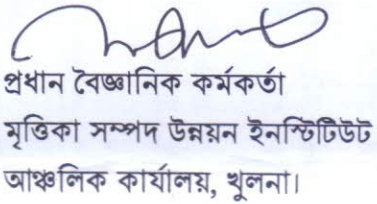 প্রধান বৈজ্ঞানিক কর্মকর্তা
মৃত্তিকা সম্পদ উন্নয়ন ইনস্টিটিউট
আঞ্চলিক কার্যালয়, খুলনা।